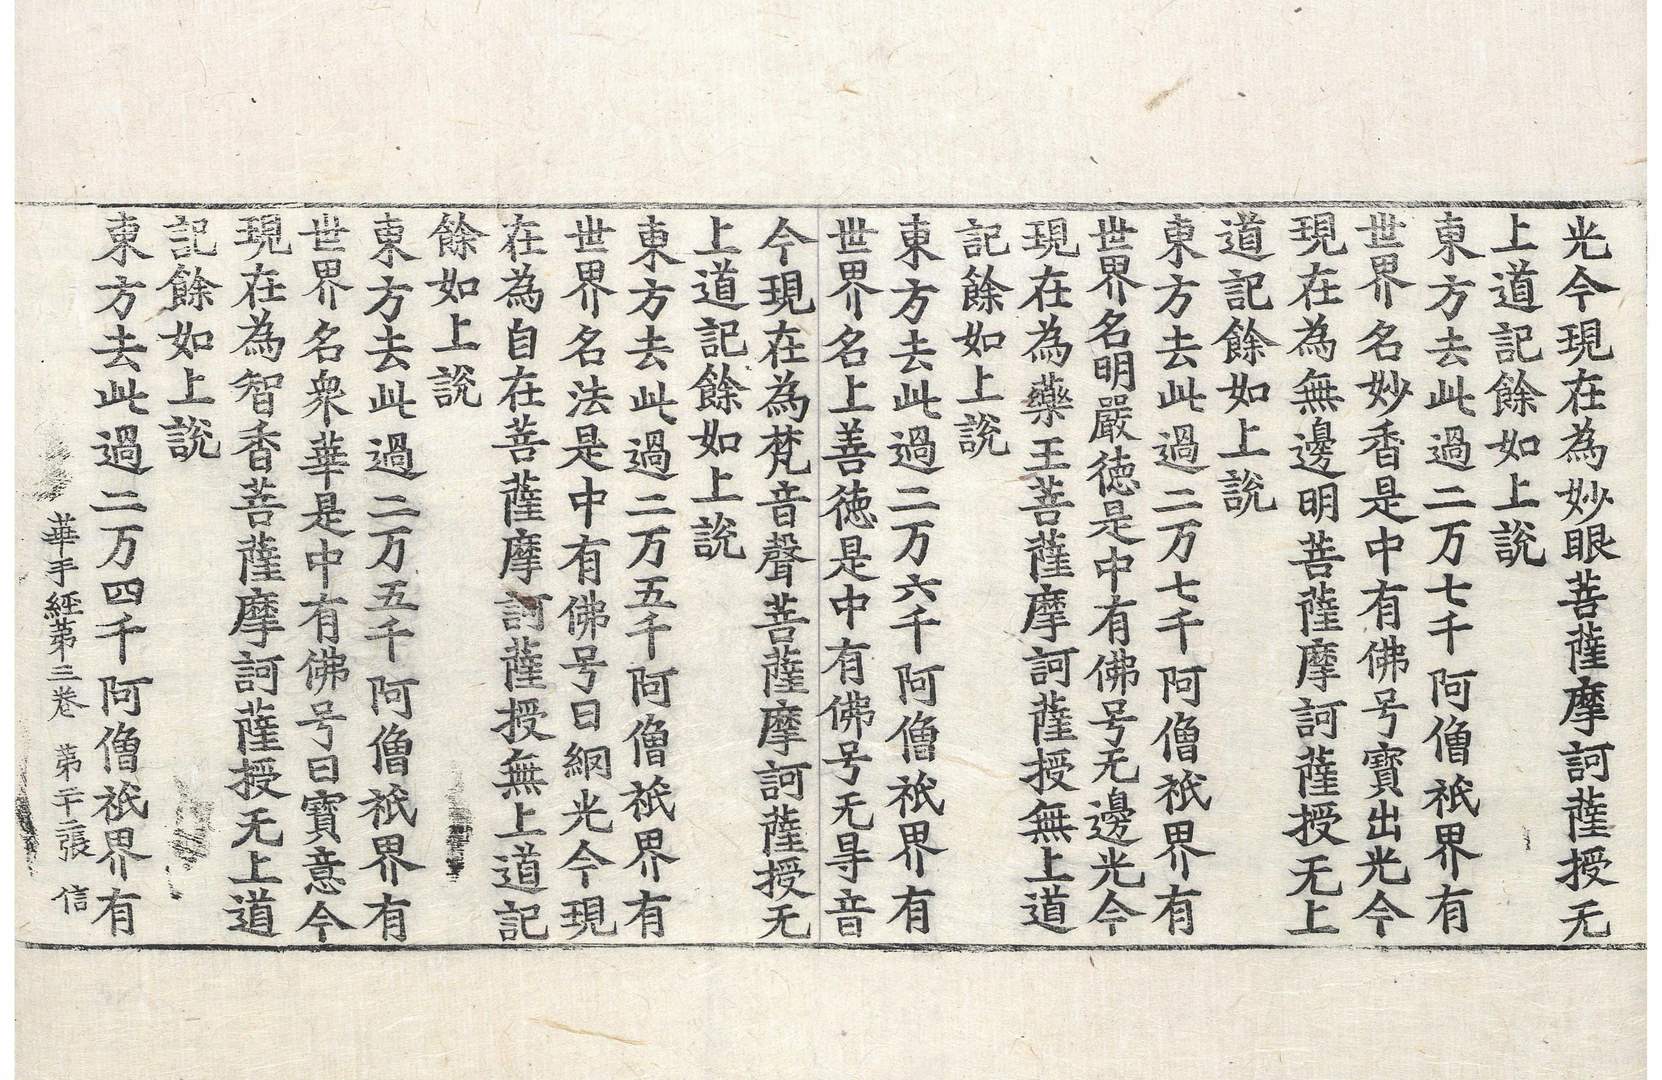 光今現在為妙眼菩薩摩訶薩授无
上道記餘如上說
東方去此過二万七千阿僧祇界有
世界名妙香是中有佛号寶出光今
現在為無邊明菩薩摩訶薩授无上
道記餘如上說
東方去此過二万七千阿僧祇界有
世界名明嚴徳是中有佛号无邊光今
現在為藥王菩薩摩訶薩授無上道
記餘如上說
東方去此過二万六千阿僧祇界有
世界名上善徳是中有佛号无㝵音
今現在為梵音聲菩薩摩訶薩授无
上道記餘如上說
東方去此過二万五千阿僧祇界有
世界名法是中有佛号曰網光今現
在為自在菩薩摩訶薩授無上道記
餘如上說
東方去此過二万五千阿僧祇界有
世界名衆華是中有佛号曰寶意今
現在為智香菩薩摩訶薩授无上道
記餘如上說
東方去此過二万四千阿僧祇界有
華手經第三卷 第二十張 信